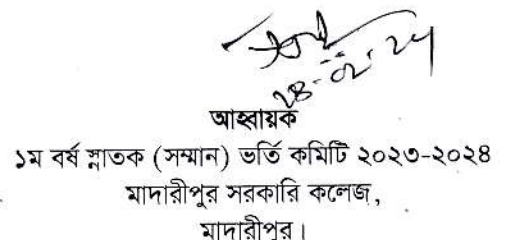 28-02-24
আহ্বায়ক
১ম বর্ষ স্নাতক (সম্মান) ভর্তি কমিটি ২০২৩-২০২৪
মাদারীপুর সরকারি কলেজ,
মাদারীপুর।